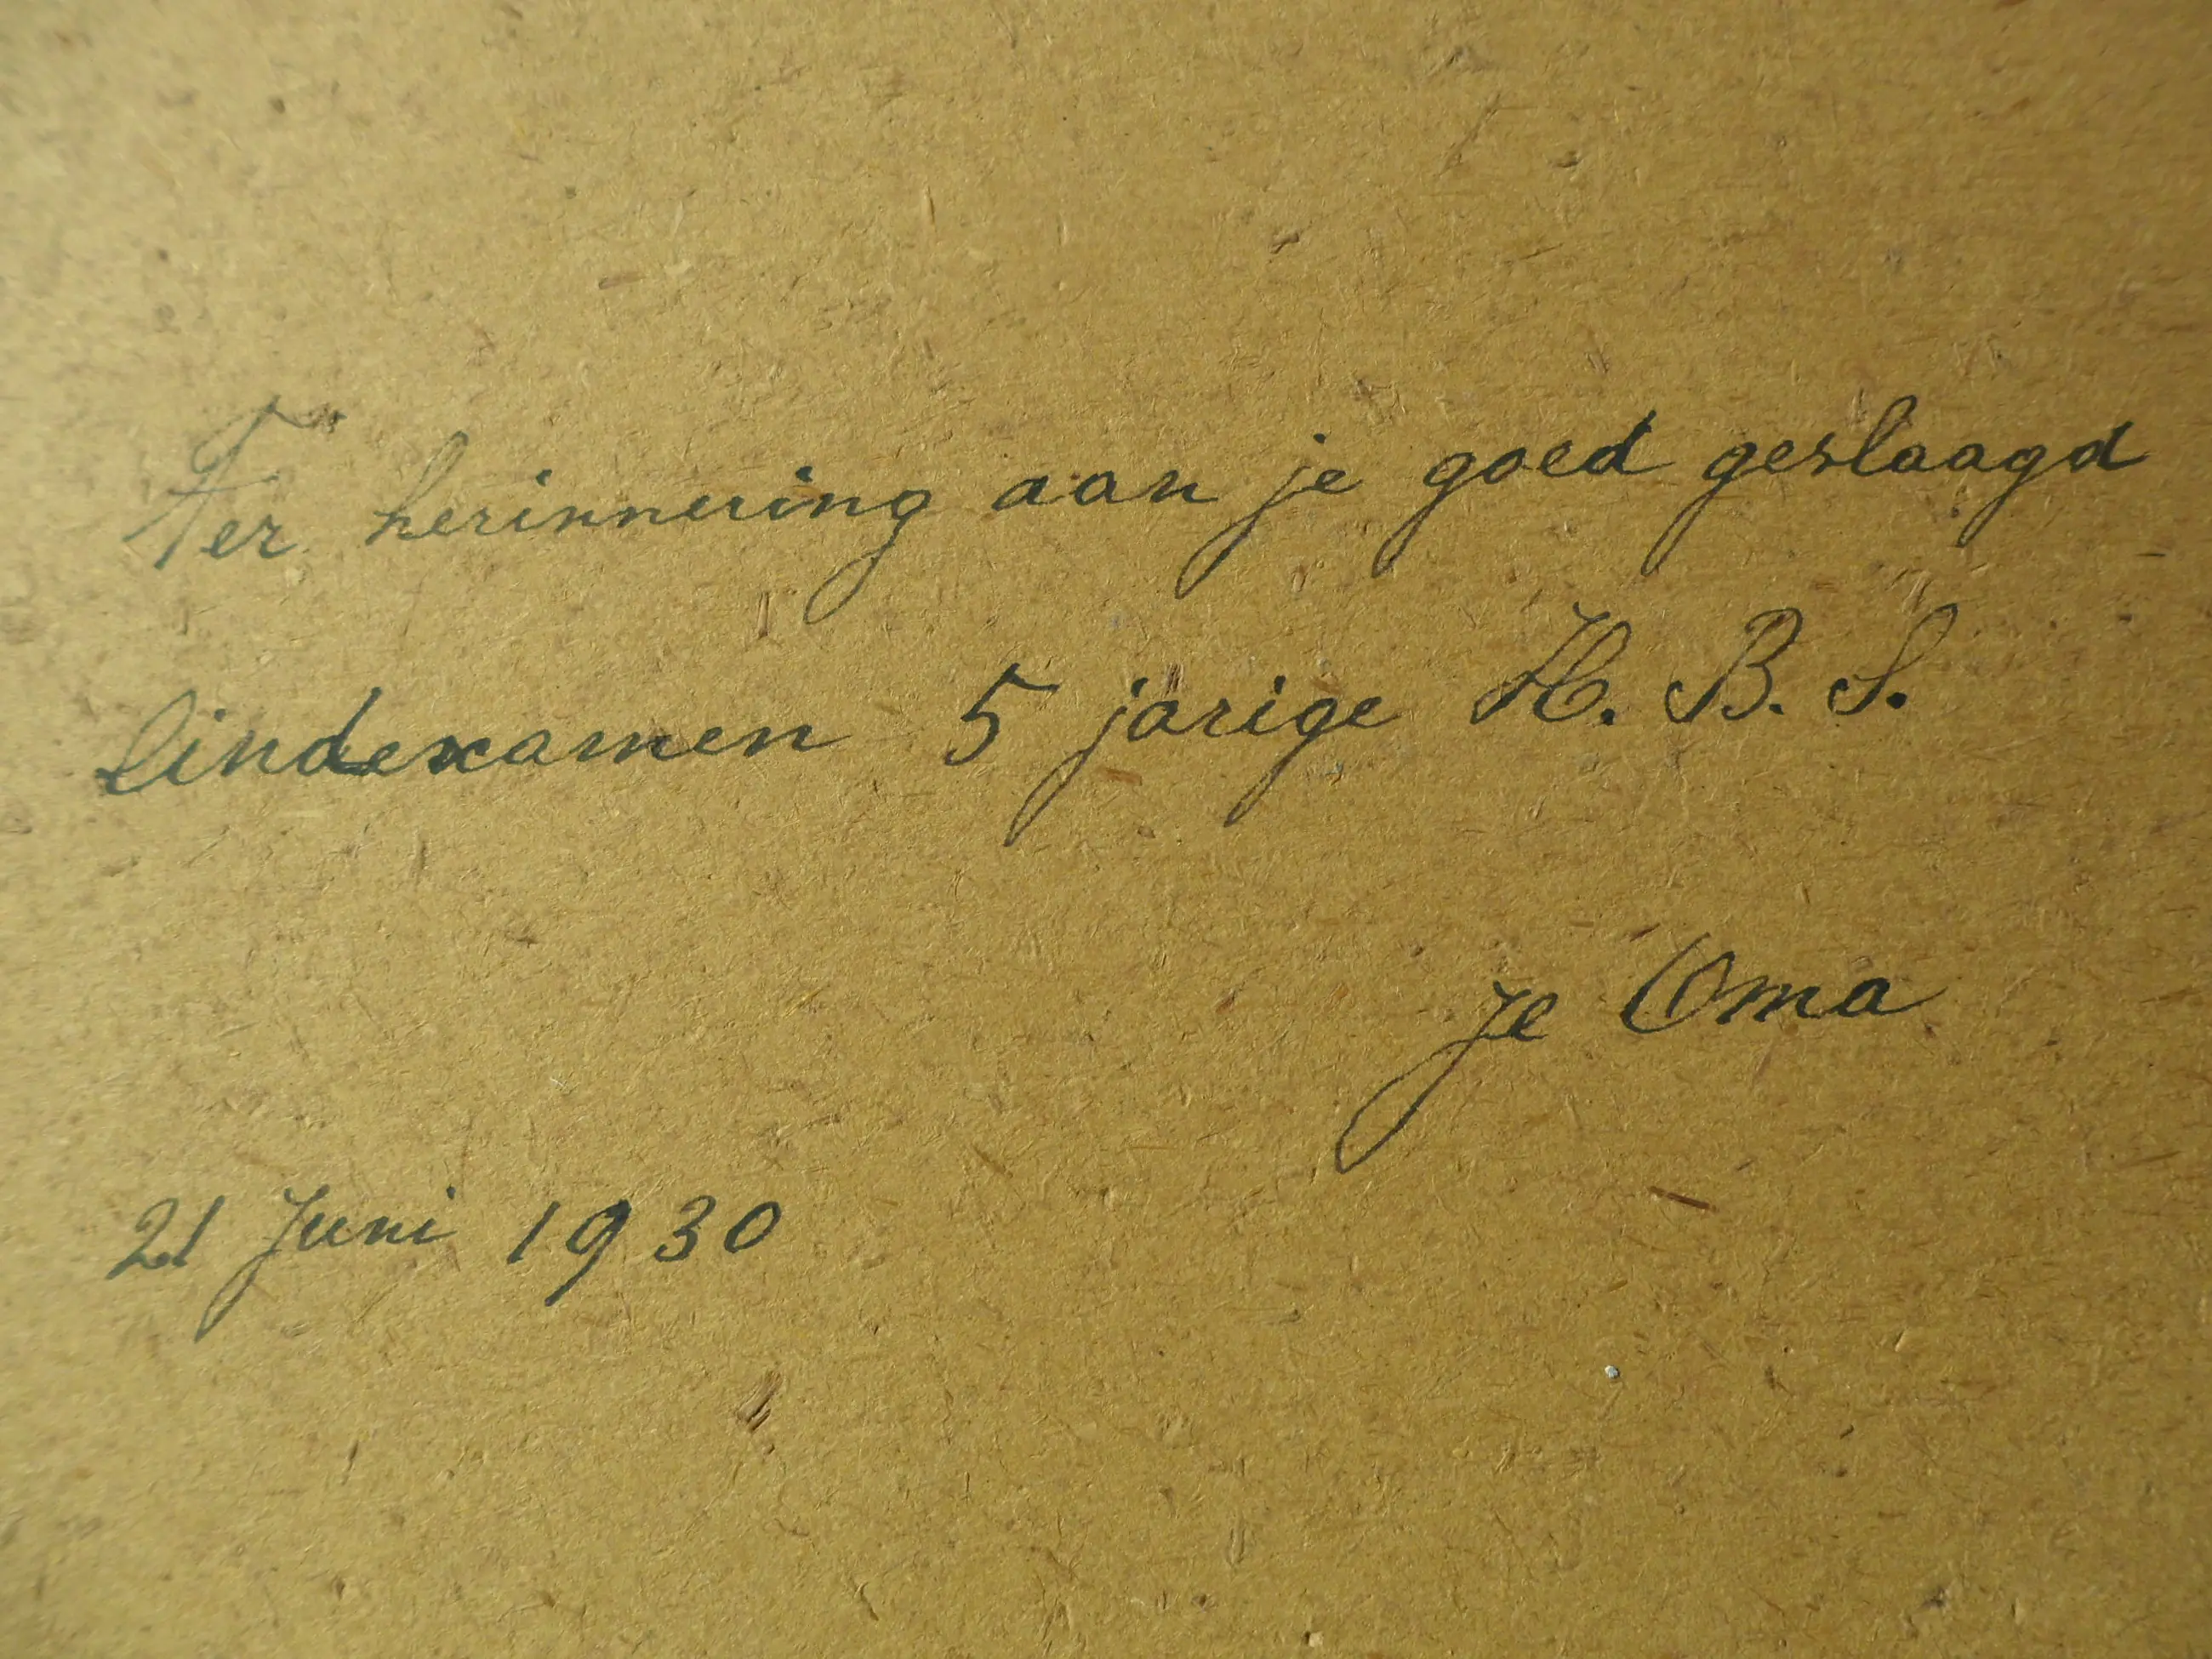 Ter herinnering aan je goed geslaagd
Eindexamen 5 jarige H. B. S.
Je Oma
21 Juni 1930